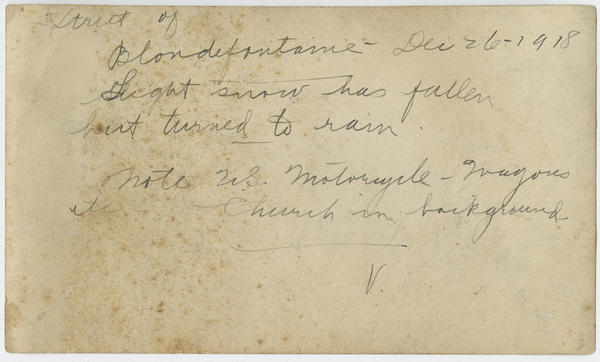 Street of
Blondefontaine - Dec 26-1918
Slight snow has fallen
but turned to rain.
Note U.S. Motorcycle - Wagons
etc - Church in background
V.